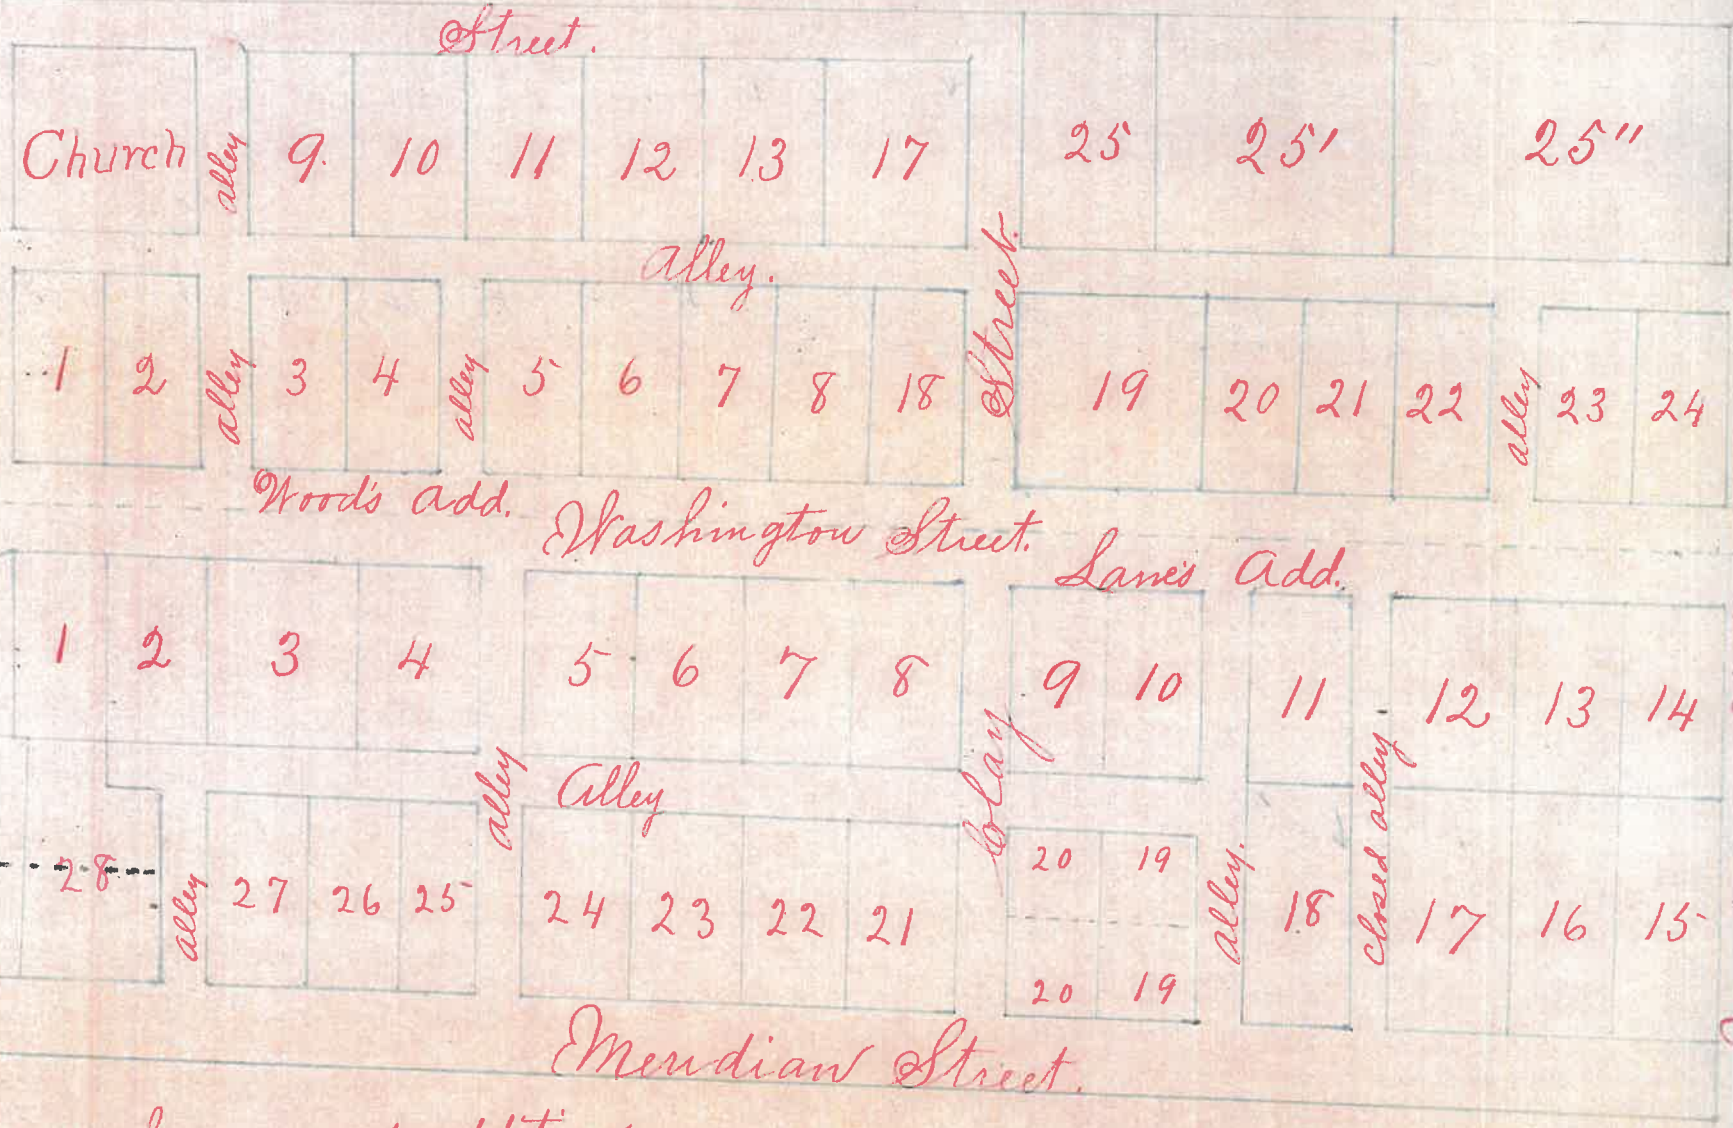 Street.
Church alley 9. 10 11 12 13 17 25 25' 25"
Alley.
1 2 alley 3 4 alley 5 6 7 8 18 Street. 19 20 21 22 alley 23 24
Wood's Add. Washington Street. Lane's Add.
1 2 3 4 5 6 7 8 9 10 11 12 13 14
alley Alley Clay closed alley
20 19
28 alley 27 26 25 24 23 22 21 alley. 18 17 16 15
20 19
Meridian Street.